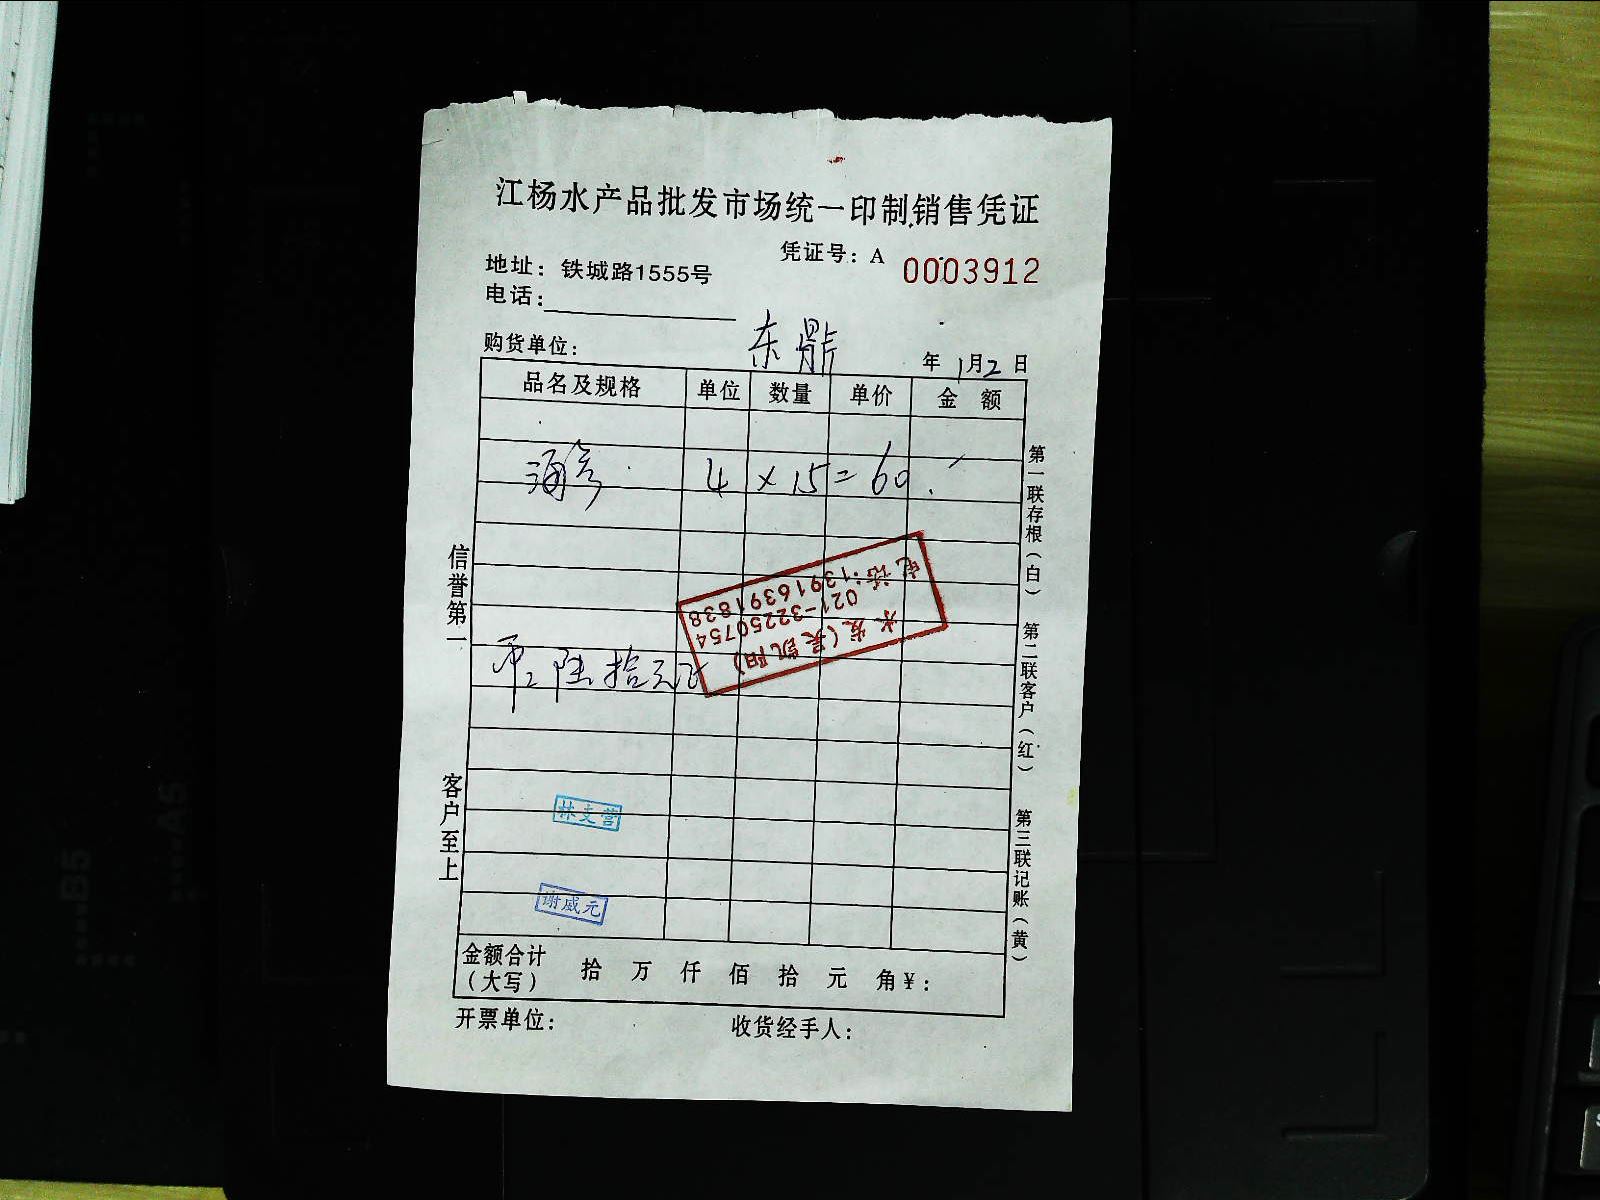 江杨水产品批发市场统一印制销售凭证
凭证号：A 0003912
地址：铁城路1555号
电话：
购货单位： 东鼎 年 1月2日
品名及规格 单位 数量 单价 金 额
4 × 15 = 60.
陆拾元正
电话:13916391838
021-32250754
永发(吴凯阳)
林支营
谢威元
金额合计（大写） 拾 万 仟 佰 拾 元 角¥：
开票单位： 收货经手人：
信誉第一
客户至上
第一联存根（白）
第二联客户（红）
第三联记账（黄）
B5
A5